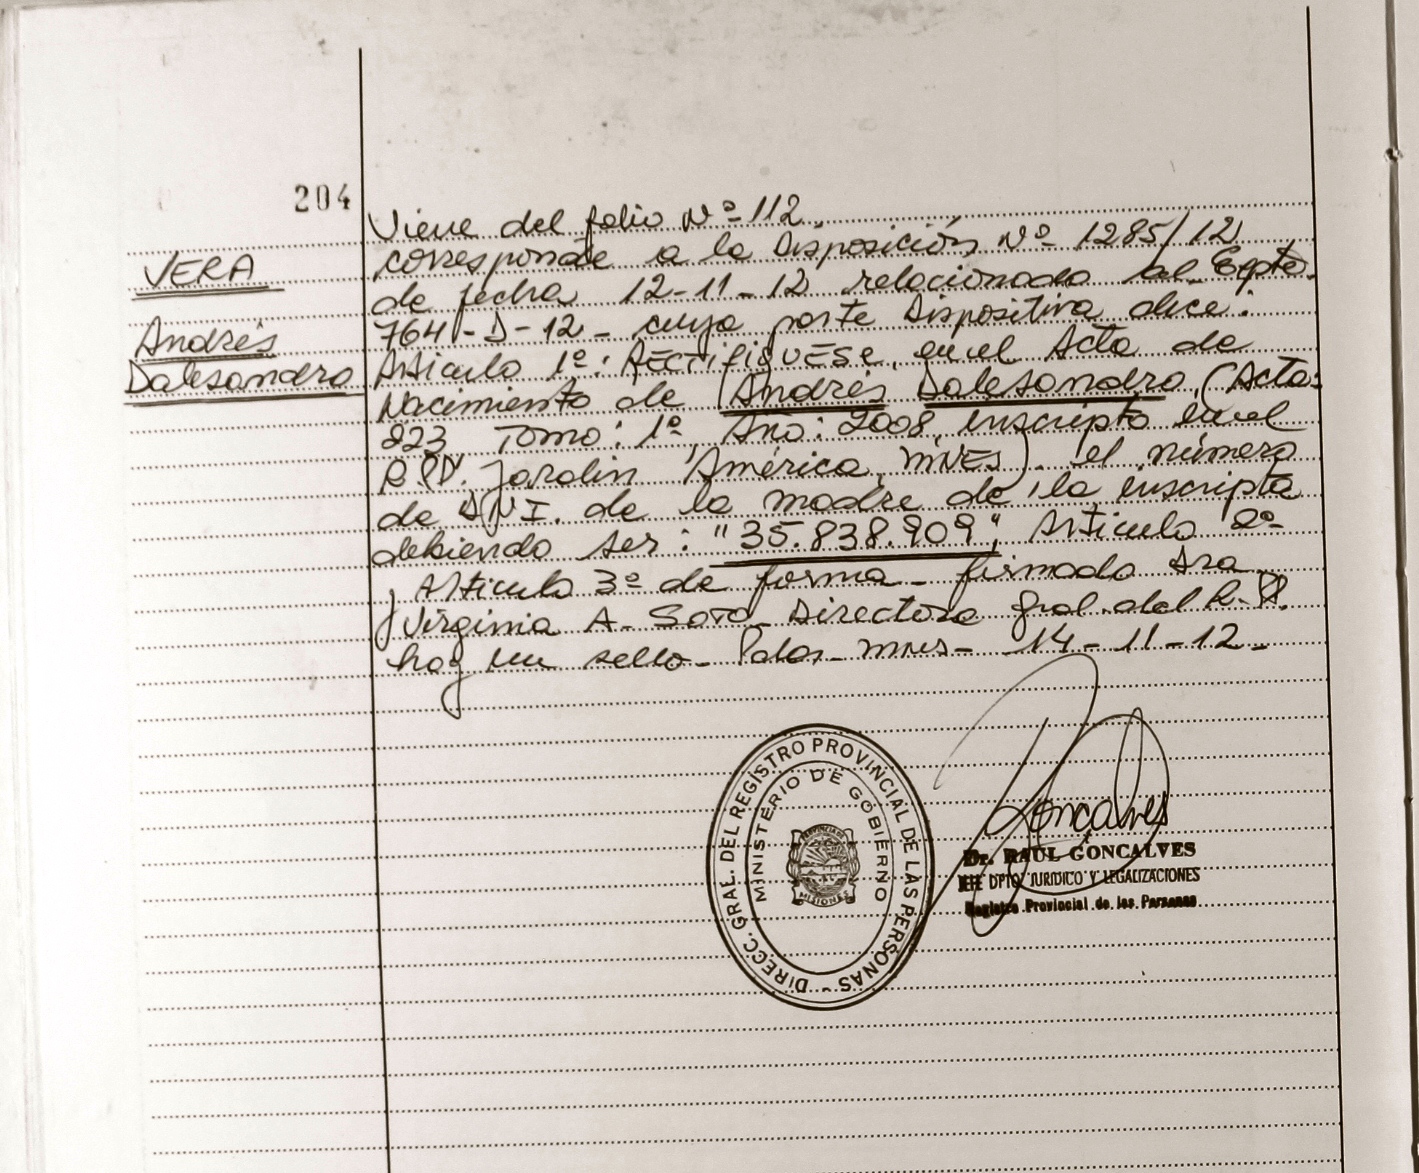 204
VERA
Andrés
Dalesandro
Viene del folio Nº 112
corresponde a la Disposición Nº 1285/12
de fecha 12-11-12 relacionado al Expte.
764-D-12- cuya parte Dispositiva dice:
Articulo 1º: RECTIFIQUESE, en el Acta de
Nacimiento de Andrés Dalesandro (Acta:
823, Tomo: 1º, Año: 2008, inscripto en el
R.PP. Jardin América, MNES). el número
de DNI. de la madre de la inscripta
debiendo ser: "35.838.909", Articulo 2º
y Articulo 3º de forma- firmado Dra
Virginia A- Soto- Directora Gral. del R.PP.
hay un sello- Pdas- Mnes- 14-11-12-
DIRECC. GRAL. DEL REGISTRO PROVINCIAL DE LAS PERSONAS -
MINISTERIO DE GOBIERNO
PROVINCIA DE
MISIONES
Goncalves
Dr. RAUL GONCALVES
JEFE DPTO. JURIDICO Y LEGALIZACIONES
Registro Provincial de las Personas